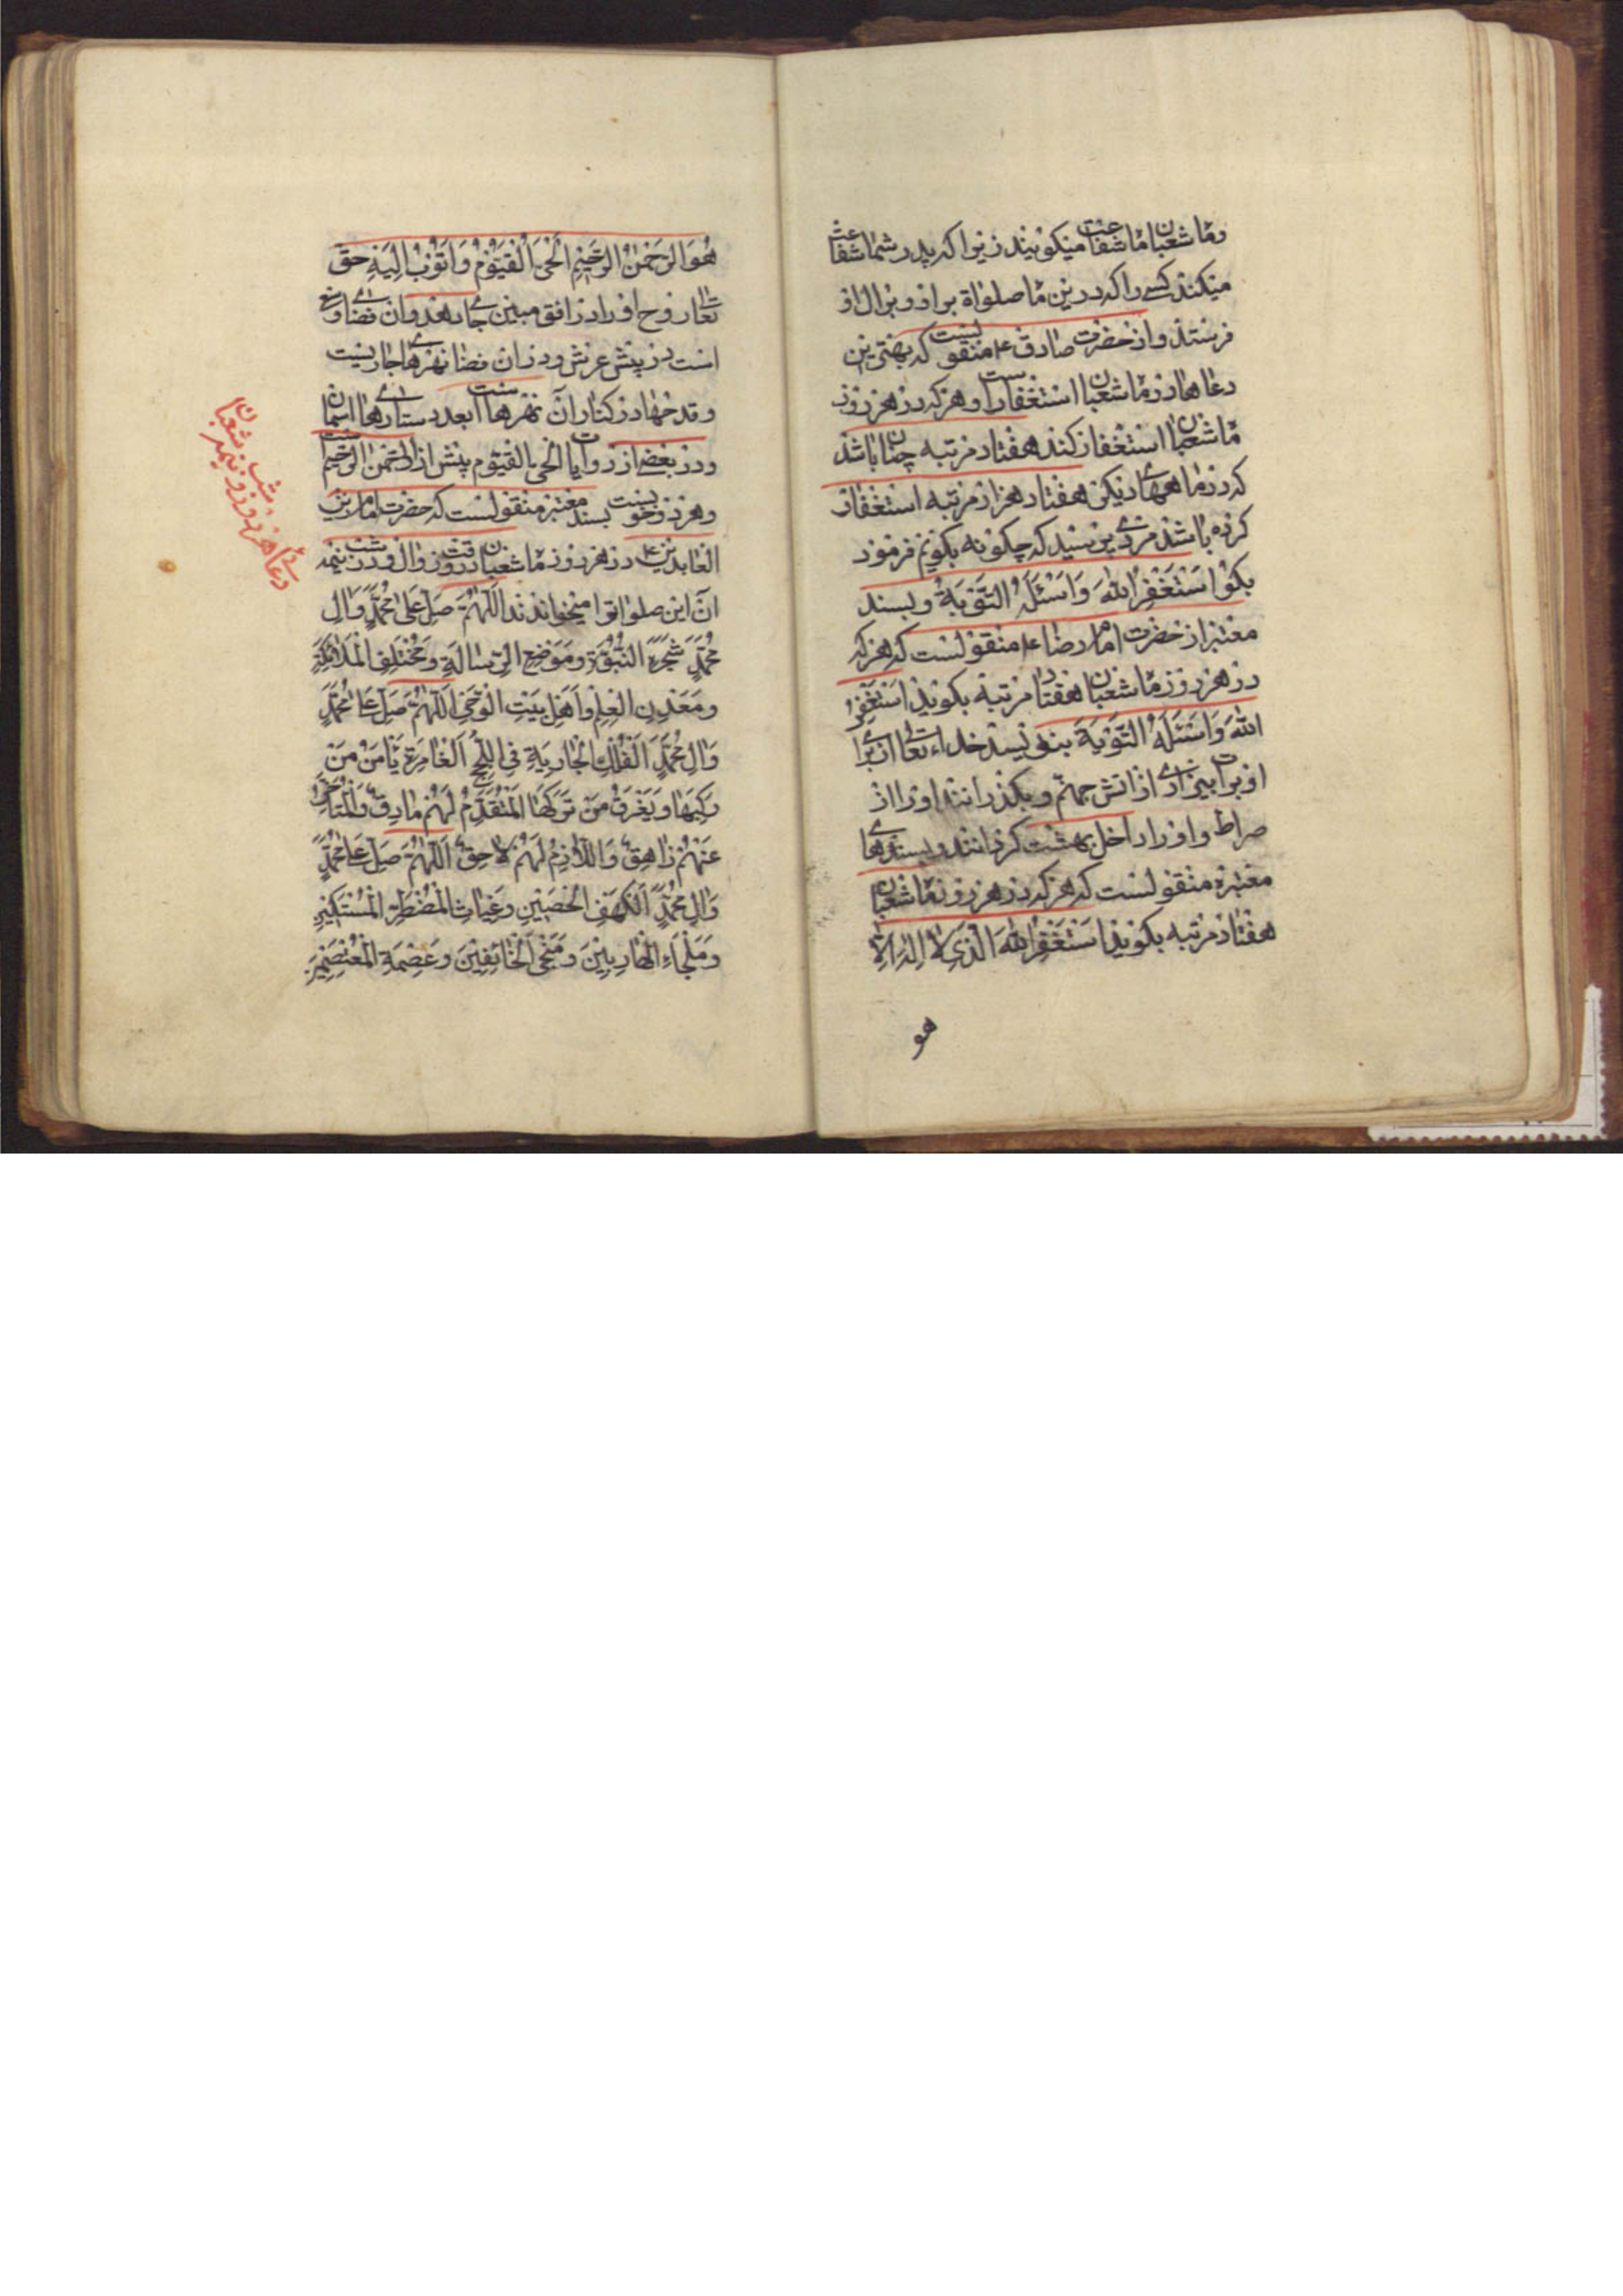 وماه شعبان ماه شفاعت میکویند زیرا که پدر شما شفاعت
میکند کسے را که درین ماه صلواة براو و برال او
فرستد و از حضرت صادق ع منقولیست که بهترین
دعاها در ماه شعبان استغفار است و هرکه در هر روز
ماه شعبان استغفار کند هفتاد مرتبه چنان باشد
که در ماههاے دیکر هفتاد هزار مرتبه استغفار
کرده باشد مردے پرسید که چکونه بکویم فرمود
بکو اَسْتَغْفِرُ اللّٰهَ وَاَسْئَلُهُ التَّوْبَةَ و بسند
معتبر از حضرت امام رضا ع منقولست که هرکه
در هر روز ماه شعبان هفتاد مرتبه بکوید اَسْتَغْفِرُ
اللّٰهَ وَاَسْئَلُهُ التَّوْبَةَ بنویسد خداے تعالی از براے
او برات بیزارے از اتش جهنم و بکذراند او را از
صراط و او را داخل بهشت کرداند و بسندهاے
معتبره منقولست که هرکه در هر روز ماه شعبان
هفتاد مرتبه بکوید اَسْتَغْفِرُ اللّٰهَ الَّذِی لَا اِلٰهَ اِلَّا
هو
هُوَ الرَّحْمٰنُ الرَّحِیْمِ الْحَیُّ الْقَیُّوْمُ وَاَتُوْبُ اِلَیْهِ حق
تعالی روح او را در افق مبین جاے دهد و ان فضاے وسیع
است در پیش عرش و در ان فضا نهرها جاریست
و قدحها در کنار آن نهرها است بعدد ستارهاے اسمان
و در بعضے از روایات الحی القیوم پیش از الرحمن الرحیم است
و هر دو خوبست بسند معتبر منقولست که حضرت امام زین
العابدین ع در هر روز ماه شعبان در وقت زوال و در شب نیمه
آن این صلواتوا میخواندند اَللّٰهُمَّ صَلِّ عَلٰی مُحَمَّدٍ وَاٰلِ
مُحَمَّدٍ شَجَرَةِ النُّبُوَّةِ وَمَوْضِعِ الرِّسَالَةِ وَمُخْتَلَفِ الْمَلَائِکَةِ
وَمَعْدِنِ الْعِلْمِ وَاَهْلِ بَیْتِ الْوَحْیِ اَللّٰهُمَّ صَلِّ عَلٰی مُحَمَّدٍ
وَاٰلِ مُحَمَّدٍ اَلْفُلْكِ الْجَارِیَةِ فِی اللُّجَجِ الْغَامِرَةِ یَاْمَنُ مَنْ
رَکِبَهَا وَیَغْرَقُ مَنْ تَرَکَهَا الْمُتَقَدِّمُ لَهُمْ مَارِقٌ وَالْمُتَاَخِّرُ
عَنْهُمْ زَاهِقٌ وَاللَّازِمُ لَهُمْ لَاحِقٌ اَللّٰهُمَّ صَلِّ عَلٰی مُحَمَّدٍ
وَاٰلِ مُحَمَّدٍ اَلْکَهْفِ الْحَصِیْنِ وَغِیَاثِ الْمُضْطَرِّ الْمُسْتَکِیْنِ
وَمَلْجَاءِ الْهَارِبِیْنَ وَمَنْجَی الْخَائِفِیْنَ وَعِصْمَةِ الْمُعْتَصِمِیْنَ
دعاے هر روز و نیمه
شب شعبان